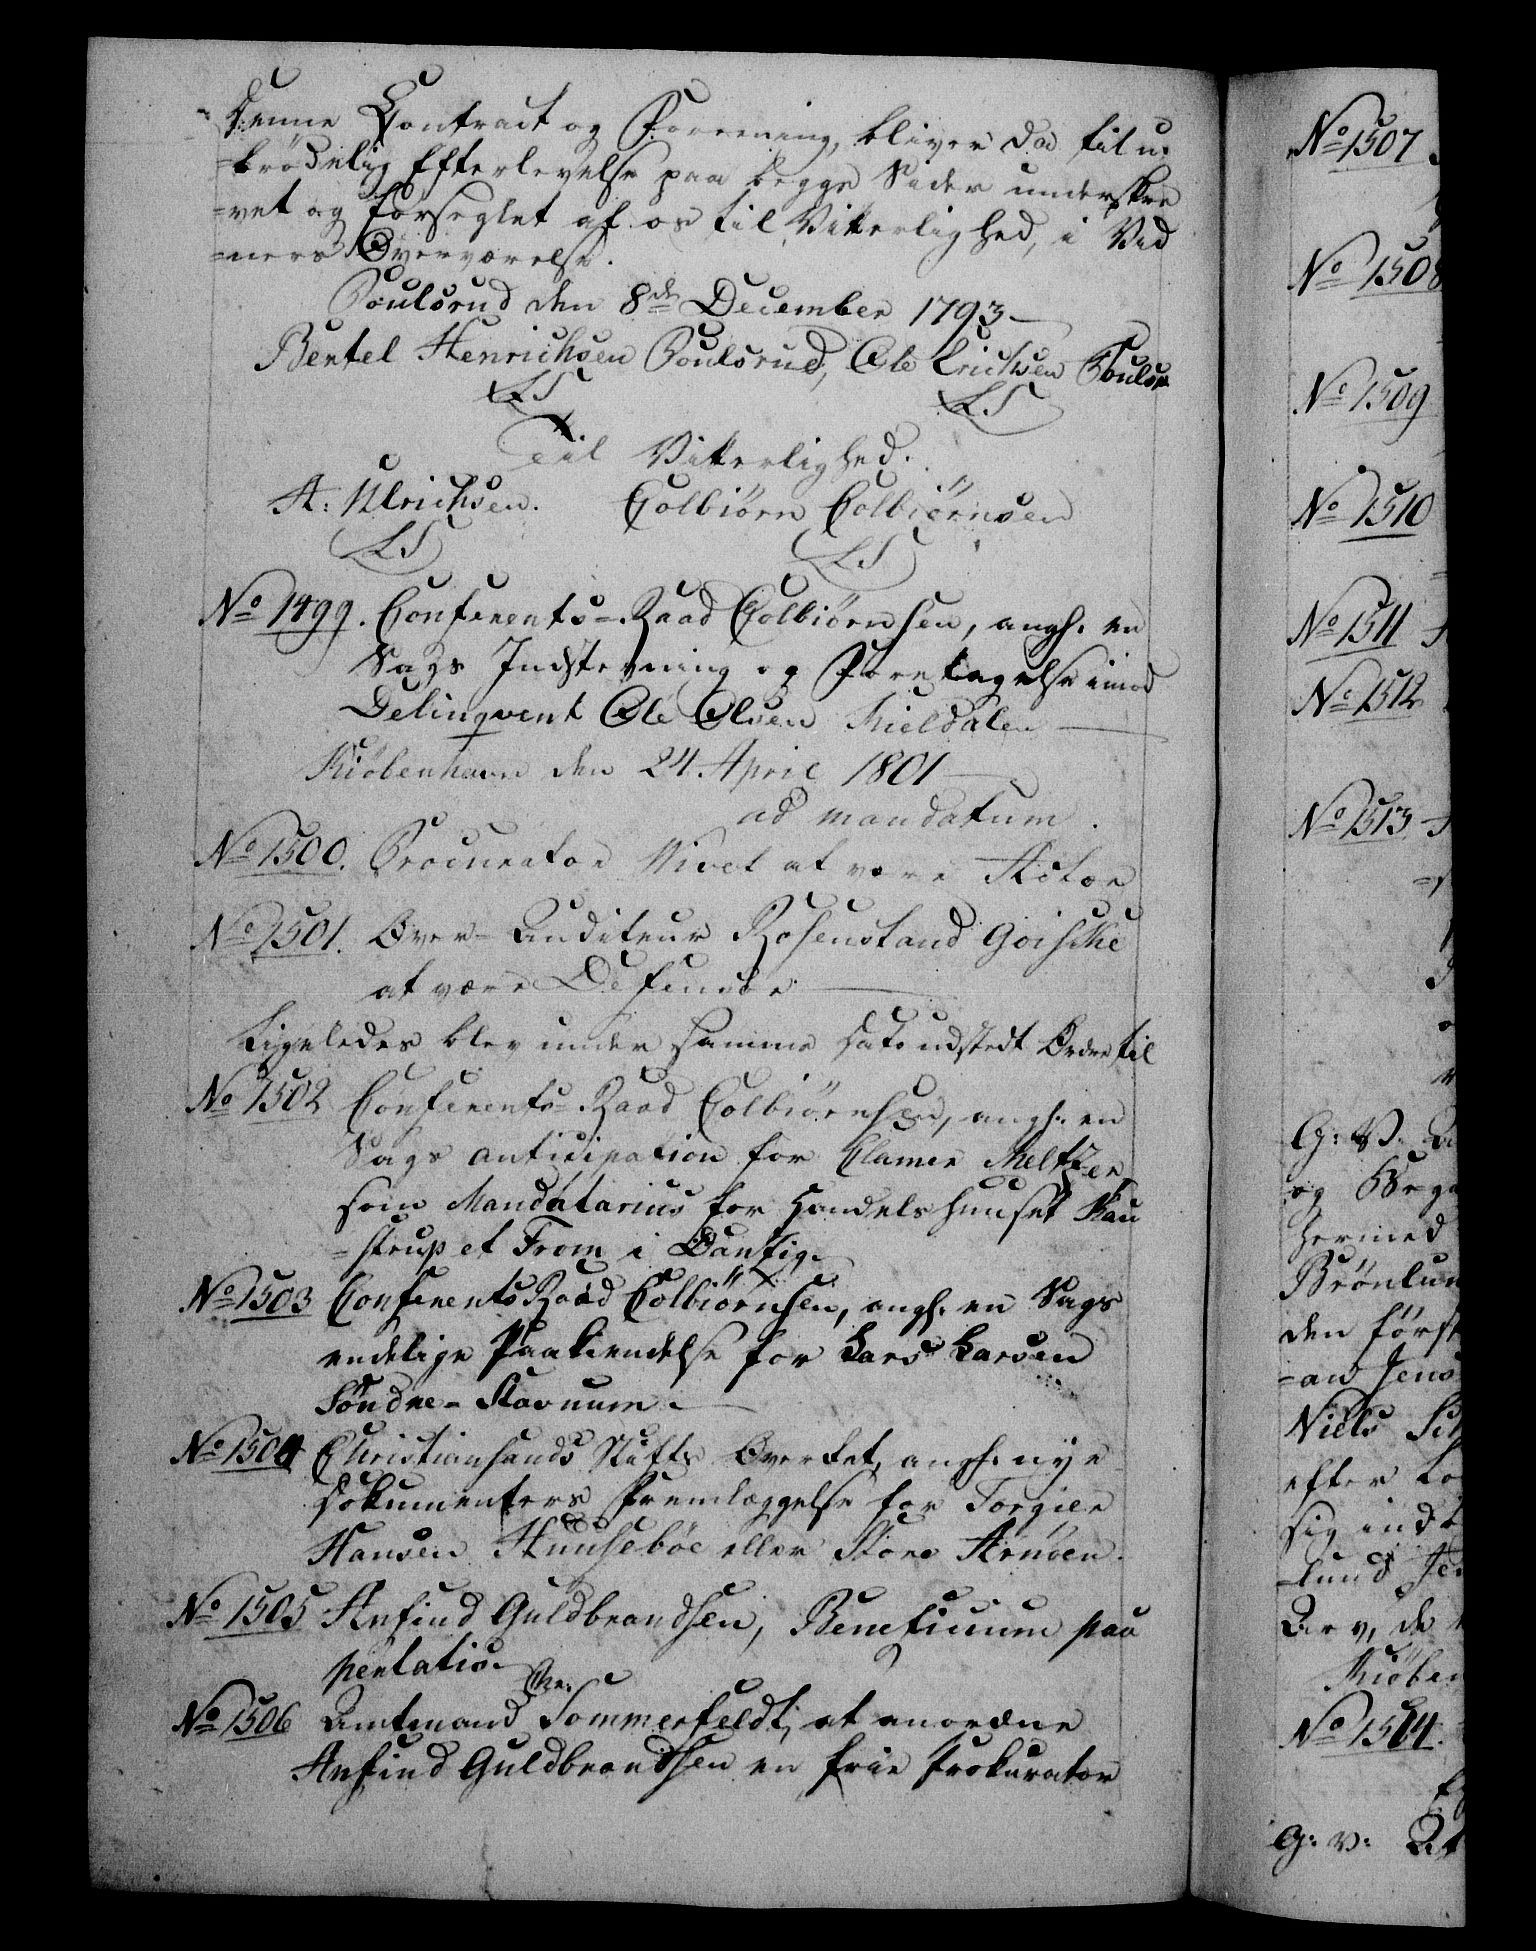 Denne Contract og Forening, bliver da til u-
=brødelig Efterlevelse paa begge Sider underskre
=vet og forseglet af os til Vitterlighed, i Vid
=ners Overværelse.
Poulsrud den 8de December 1793
Bentel Henrichsen Poulsrud, Ole Erichsen Poulsr
LS LS
Til Vitterlighed.
A: Ulrichsen. Colbiørn Colbiørnsen
LS LS
No 1499. Conferents-Raad Colbiørnsen, angh. en
Sags Indstevning og Foretagelse imod
Delinqvent Ole Olsen Kieldalen
Kiøbenhavn den 24. April 1801
ad mandatum.
No 1500. Procurator Wivet at være Actor
No 1501. Over-Auditeur Rosenstand Goiske
at være Defensor
Ligeledes blev under samme Dato udstedt Ordre til
No 1502 Conferents-Raad Colbiørnsen, angh. en
Sags anticipation for Clamer Meltzer
som Mandatarius for Handelshuuset Kau
=strup et From i Dantzig.
No 1503 Conferents Raad Colbiørnsen, angh. en Sags
endelige Paakiendelse for Lars Larsen
Søndre-Stavnum.
No 1504 Christiansands Stifts Overret, angh. nye
Dokumenters Fremlæggelse for Torgier
Hansen Huusebøe eller Store Arnøen.
No 1505 Anfind Guldbrandsen, Beneficium pau
pertatis.
No 1506 Amtmand Sommerfeldt, at anordne
Anfind Guldbrandsen en frie Prokurator
No 1507
No 1508
No 1509
No 1510
No 1511
No 1512
No 1513
G: V:
og
hermed
Brönlun
den først
=an Jens
Niels
efter
sig ind
=lund
Arv, de
Kiøben
No 1514.
G: V: